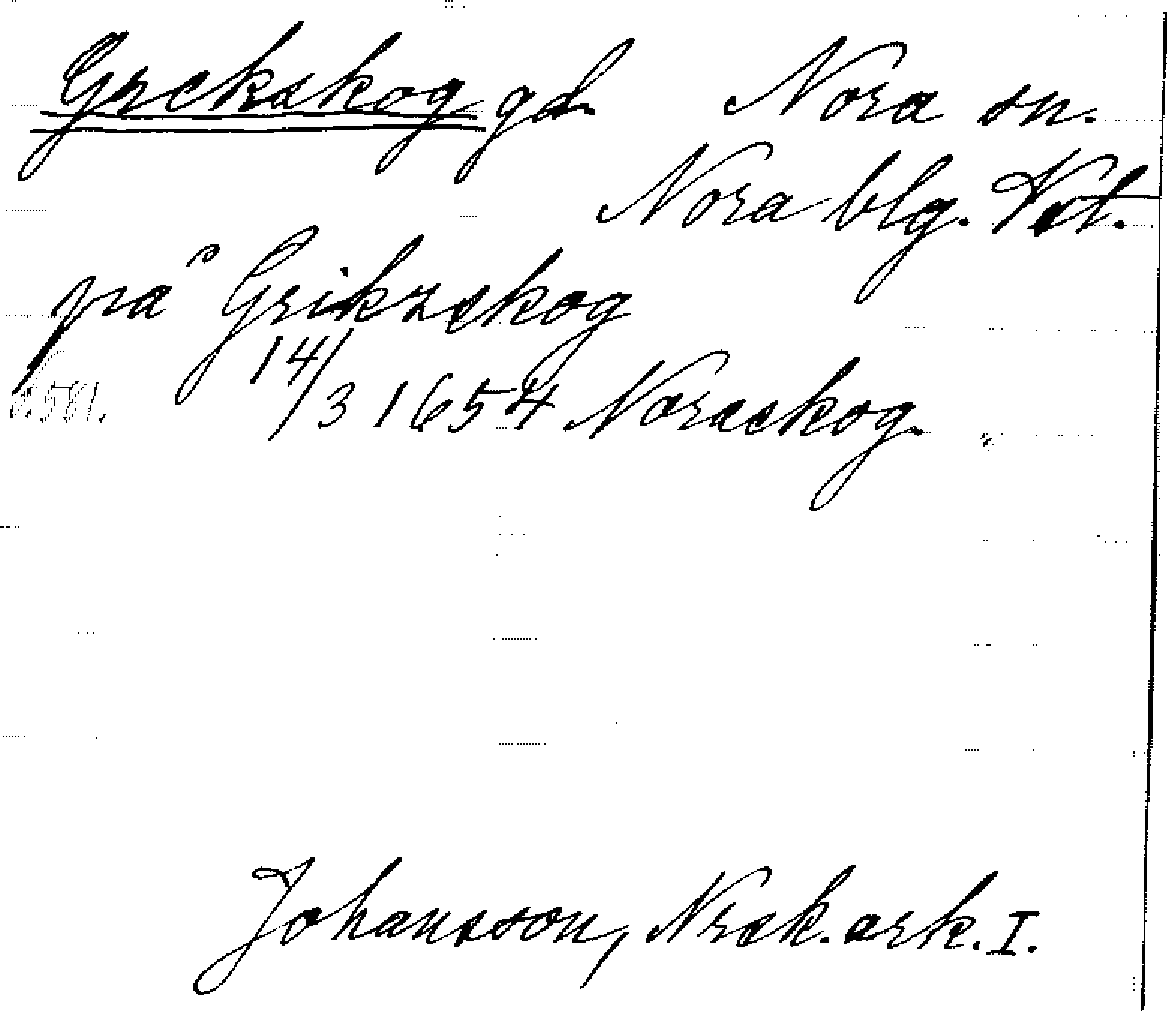 Grekskog gd Nora sn.
Nora blg. Vstl.
på Grikzskog
14/3 1654 Noraskog.
s. 571.
Johansson, Nrsk. ark. I.